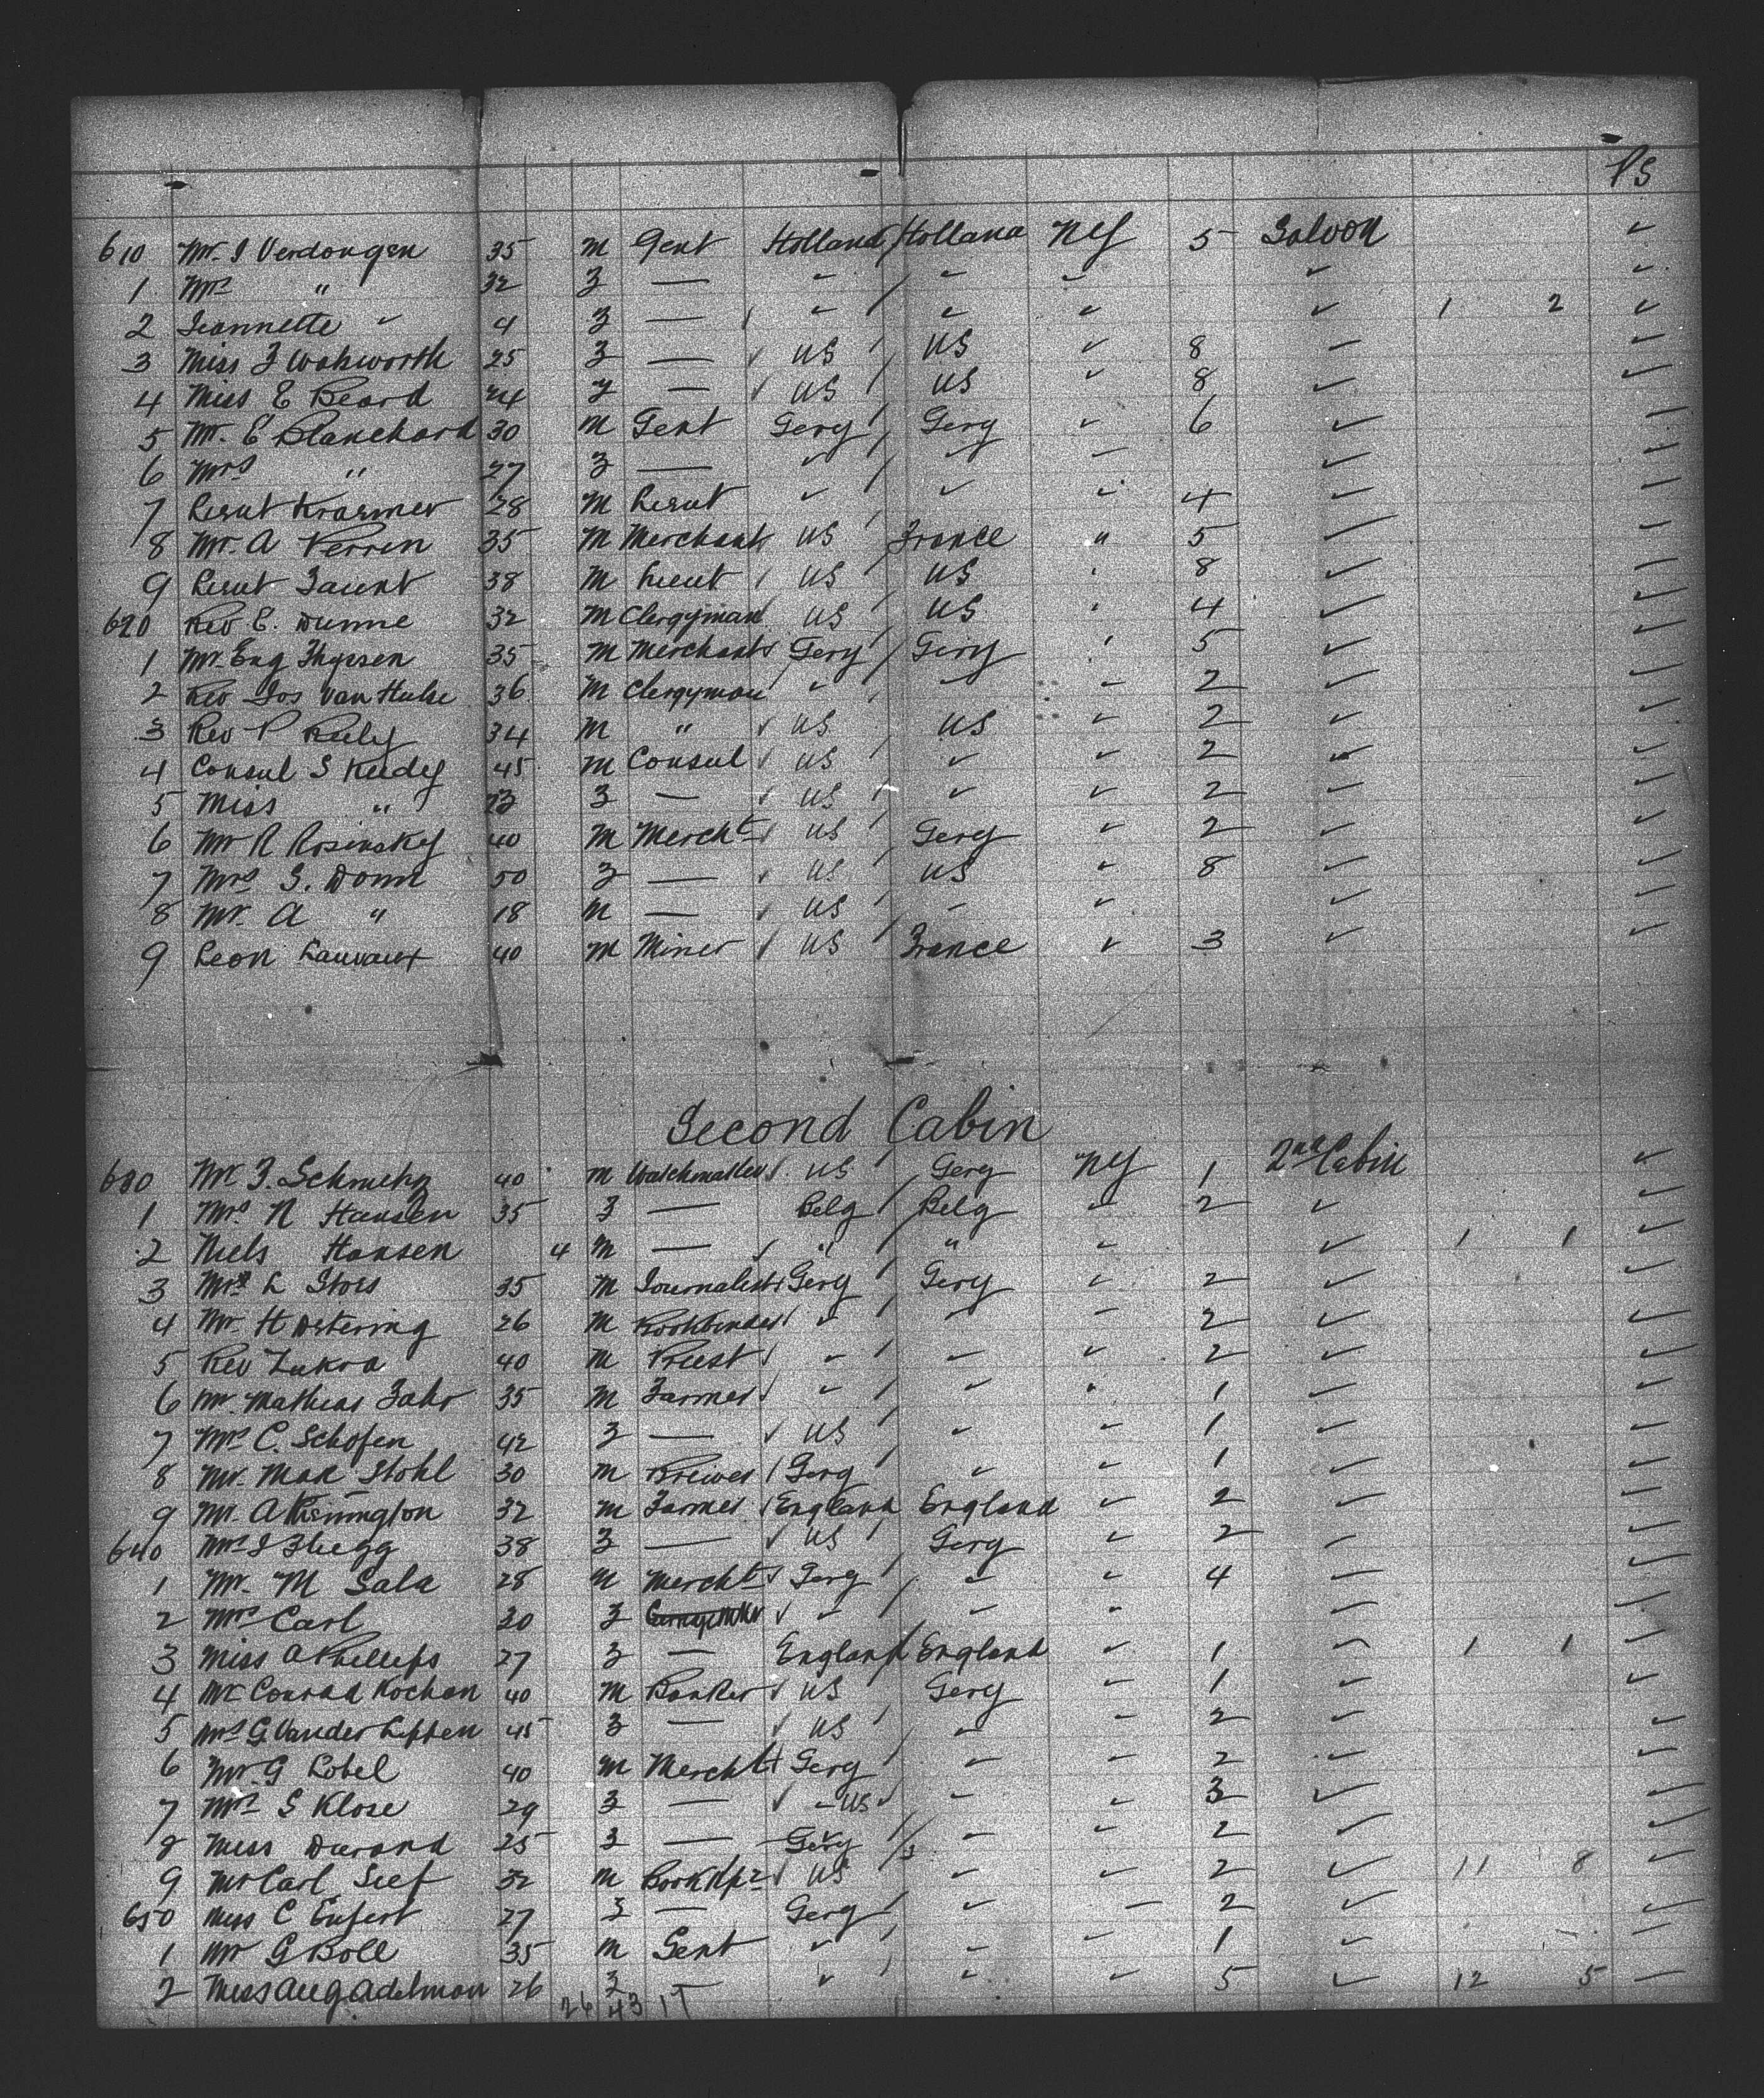 PS
610 Mr. J Verdongen 35 M Gent Holland Holland NY 5 Saloon ✓
1 Mrs " 32 F — ✓ ✓ ✓ ✓ ✓
2 Jeannette ✓ 4 F — ✓ ✓ ✓ ✓ 1 2 ✓
3 Miss F 25 F — US US ✓ 8 ✓ ✓
4 Miss E Beard 24 F — US US ✓ 8 ✓ ✓
5 Mr. E Blanchard 30 M Gent Gery Gery ✓ 6 ✓ ✓
6 Mrs " 27 F — ✓ ✓ ✓ ✓ ✓
7 Lieut Kraemer 28 M Lieut ✓ ✓ ✓ 4 ✓ ✓
8 Mr. A Perren 35 M Merchant US France " 5 ✓ ✓
9 Lieut Taunt 38 M Lieut US US " 8 ✓ ✓
620 Rev E. Dunne 32 M Clergyman US US " 4 ✓ ✓
1 Mr. Eug Thyssen 35 M Merchant Gery Gery " 5 ✓ ✓
2 Rev Jos Van Hulse 36 M Clergyman ✓ ✓ ✓ 2 ✓ ✓
3 Rev P 34 M " US US ✓ 2 ✓ ✓
4 Consul S Keedy 45 M Consul US ✓ ✓ 2 ✓ ✓
5 Miss " F — US ✓ ✓ 2 ✓ ✓
6 Mr R Rosinsky 40 M Mercht US Gery ✓ 2 ✓ ✓
7 Mrs S. Donn 50 F — US US ✓ 8 ✓ ✓
8 Mr. A " 18 M — US ✓ ✓ ✓ ✓
9 Leon Lauvaux 40 M Miner US France ✓ 3 ✓ ✓
Second Cabin
630 Mr F. Schmitz 40 M Watchmaker US Gery NY 1 2nd Cabin ✓
1 Mrs N Hansen 35 F — Belg Belg ✓ 2 ✓ ✓
2 Niels Hansen 4 M — " " ✓ ✓ 1 1 ✓
3 L Stors 35 M Journalist Gery Gery ✓ 2 ✓ ✓
4 Mr. H Astering 26 M Bookbinder ✓ ✓ ✓ 2 ✓ ✓
5 Rev Lukra 40 M Priest ✓ ✓ ✓ 2 ✓ ✓
6 Mr. Mathias Fahr 35 M Farmer ✓ ✓ " 1 ✓ ✓
7 Mrs C. Schofen 42 F — US ✓ ✓ 1 ✓ ✓
8 Mr. Max Stohl 30 M Brewer Gerg ✓ ✓ 1 ✓ ✓
9 Mr. A 32 M Farmer England England ✓ 2 ✓ ✓
640 Mrs J Fluegg 38 F — US Gery ✓ 2 ✓ ✓
1 Mr. M Sala 28 M Mercht Gerg ✓ ✓ 4 ✓ ✓
2 Mrs Carl 30 F ✓ ✓ ✓ ✓ ✓
3 Miss A Phillips 27 F — England England ✓ 1 ✓ 1 1 ✓
4 Mr Conrad Kochan 40 M Banker US Gery ✓ 1 ✓ ✓
5 Mrs G. Vander Lippen 45 F — US ✓ ✓ 2 ✓ ✓
6 Mr. G Lobel 40 M Mercht Gerg ✓ ✓ 2 ✓ ✓
7 Mrs S Klose 29 F — US ✓ ✓ 3 ✓ ✓
8 Miss Durand 25 F — Gery ✓ ✓ 2 ✓ ✓
9 Mr Carl Seef 32 M Bookkpr US ✓ ✓ 2 ✓ 11 8 ✓
650 Miss C Enfert 27 F — Gerg ✓ — 2 ✓ ✓
1 Mr G Boll 35 M Gent ✓ ✓ ✓ 1 ✓
2 Miss Aug Adelman 26 F — ✓ ✓ ✓ 5 ✓ 12 5 —
26 43 17